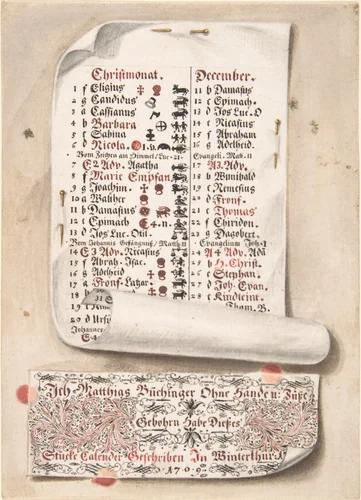 Christmonat.
1 f Eligius
2 g Candidus
3 a Cassianus
4 b Barbara
5 c Sabina
6 d Nicola.
Vom Zeichen am Himmel/Luc·21·
7 E 2 Adv. Agatha
8 f Marie Empfan.
9 g Joachim.
10 a Walther
11 b Damasius
12 c Epimach
13 d Jos Luc. Otil
Vom Johannis Gefängnuß/Matt·11
14 E 3 Adv. Nicasius
15 f Abrah. Isac.
16 g Adelheid
17 a Fronf. Lazar
18 b
19
20 d Urs
Johannes
E 4
December.
11 b Damasius
12 c Epimach.
13 d Jos Luc. O
14 e Nicasius
15 f Abraham
16 g Adelheid
Evangeli. Matt·11
17 A 3. Adv.
18 b Wunibald
19 c Nemesius
20 d Fronf.
21 e Thomas
22 f Chiridon.
23 g Dagobert.
Evangelium Joh·1
24 A 4 Adv. Ada
25 b H. Christ.
26 c Stephan.
27 d Joh. Evan.
28 e Kindleint.
Thom. B.
Ich Matthias Büchinger Ohne Hände u: Füße
Gebohrn Habe Dießes
Stücke Calender Geschriben In Winterthur
1709